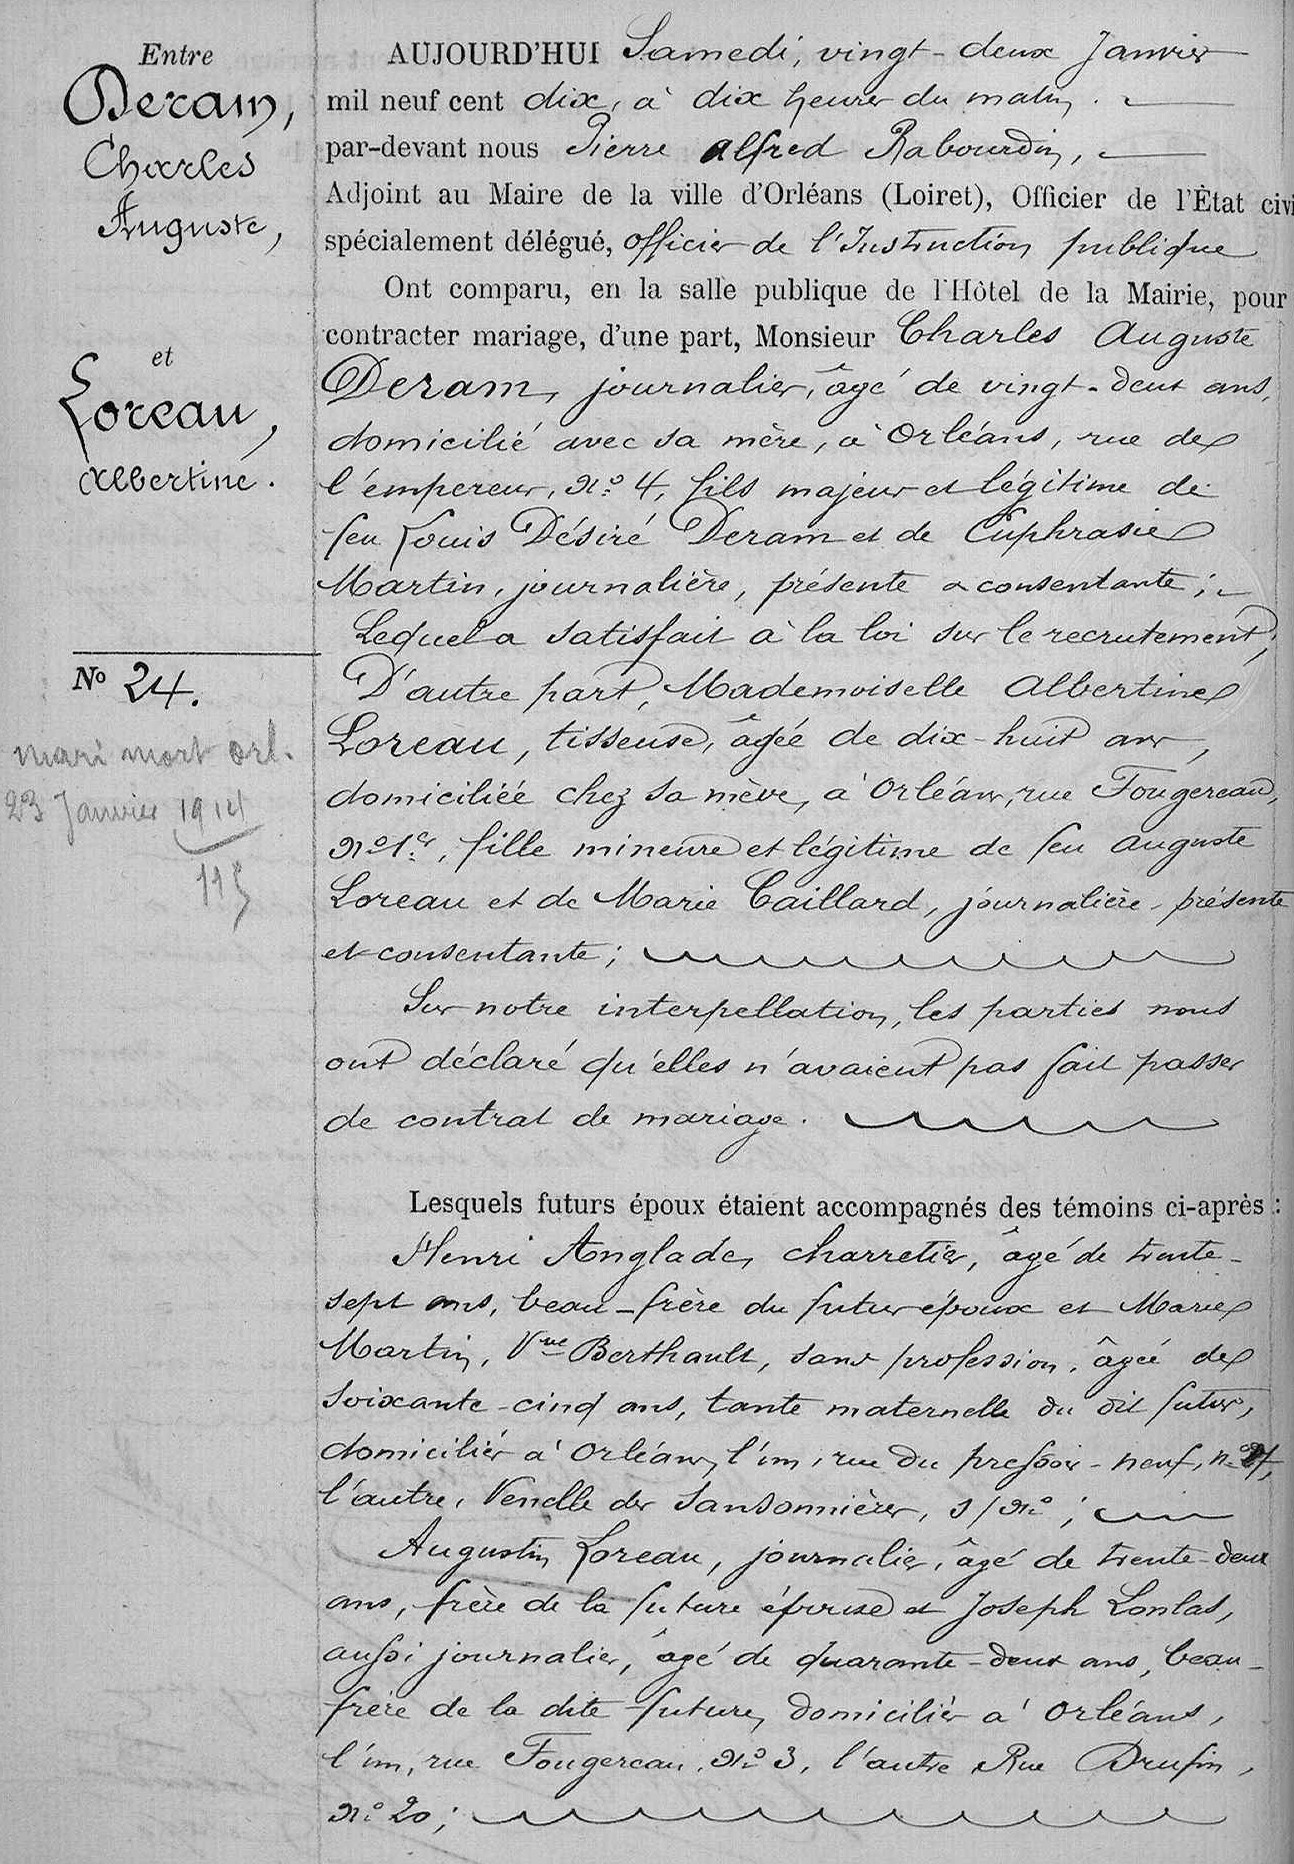 Entre
Deram,
Charles
Auguste,
et
Loreau,
Albertine.
No 24.
mari mort Orl.
23 Janvier 1914
115
AUJOURD'HUI Samedi, vingt-deux Janvier
mil neuf cent dix, à dix heures du matin.
par-devant nous Pierre Alfred Rabourdin,
Adjoint au Maire de la ville d'Orléans (Loiret), Officier de l'État civi
spécialement délégué, officier de l'Instruction publique
Ont comparu, en la salle publique de l'Hôtel de la Mairie, pour
contracter mariage, d'une part, Monsieur Charles Auguste
Deram, journalier, âgé de vingt-deux ans,
domicilié avec sa mère, à Orléans, rue de
l'empereur, No 4, fils majeur et légitime de
feu Louis Désiré Deram et de Euphrasie
Martin, journalière, présente & consentante;
Lequel a satisfait à la loi sur le recrutement;
D'autre part, Mademoiselle Albertine
Loreau, tisseuse, âgée de dix-huit ans,
domiciliée chez sa mère, à Orléans, rue Fougereau,
No 1er, fille mineure et légitime de feu Auguste
Loreau et de Marie Caillard, journalière, présente
et consentante;
Sur notre interpellation, les parties nous
ont déclaré qu'elles n'avaient pas fait passer
de contrat de mariage.
Lesquels futurs époux étaient accompagnés des témoins ci-après :
Henri Anglade, charretier, âgé de trente-
sept ans, beau-frère du futur époux et Marie
Martin, Vve Berthault, sans profession, âgée de
soixante-cinq ans, tante maternelle du dit futur,
domiciliés à Orléans, l'un, rue du pressoir-neuf,
l'autre, Venelle des Sansonnières, s/No;
Augustin Loreau, journalier, âgé de trente-deux
ans, frère de la future épouse et Joseph Lonlas,
aussi journalier, âgé de quarante-deux ans, beau-
frère de la dite future, domiciliés à Orléans,
l'un, rue Fougereau, No 3, l'autre Rue Drufin,
No 20;